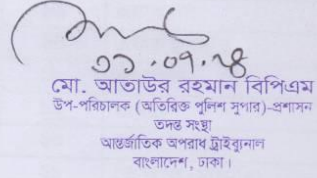 ১১.০৭.২৪
মো. আতাউর রহমান বিপিএম
উপ-পরিচালক (অতিরিক্ত পুলিশ সুপার)-প্রশাসন
তদন্ত সংস্থা
আন্তর্জাতিক অপরাধ ট্রাইব্যুনাল
বাংলাদেশ, ঢাকা।